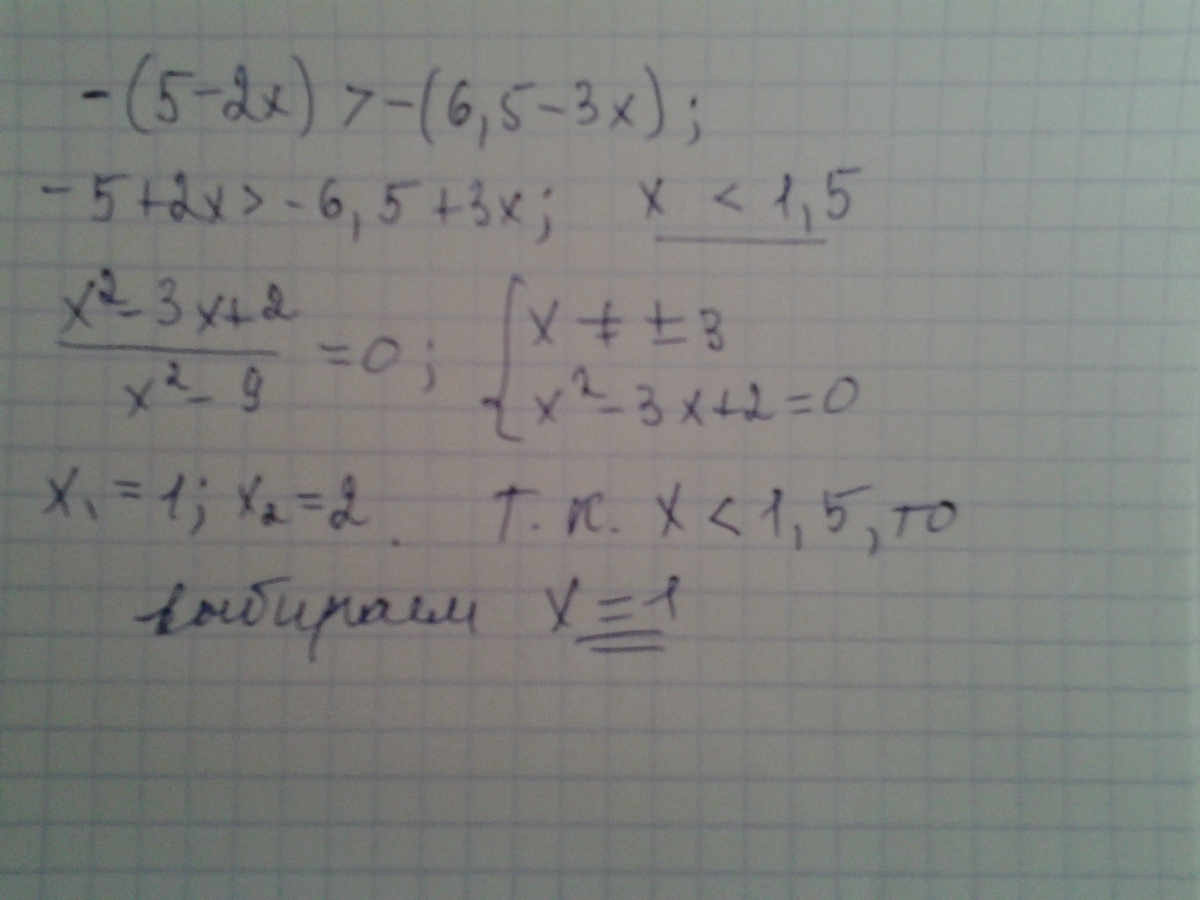 -(5-2x) > -(6,5-3x);
-5+2x > -6,5+3x; x < 1,5
x²-3x+2 / x²-9 = 0; { x ≠ ±3
x²-3x+2=0
x₁ = 1; x₂ = 2. Т. к. x < 1,5, то
выбираем x = 1